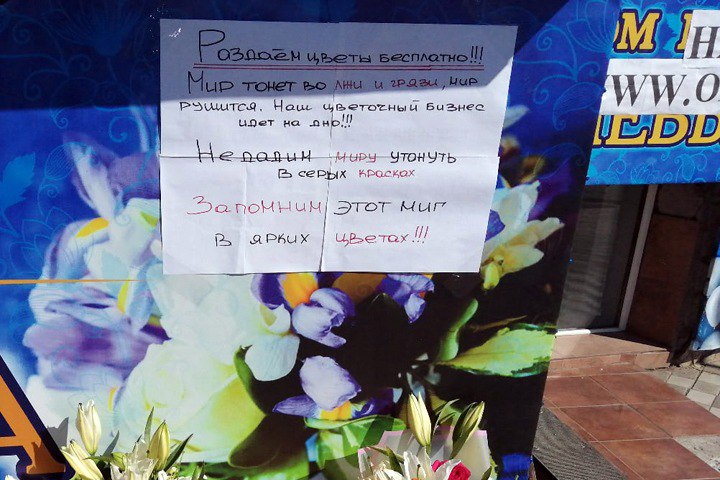 Роздаём цветы бесплатно!!!
Мир тонет во лжи и грязи, мир
рушится. Наш цветочный бизнес
идет на дно!!!
Не дадим миру утонуть
в серых красках
Запомним этот миг
в ярких цветах!!!
ОМ
WWW.O